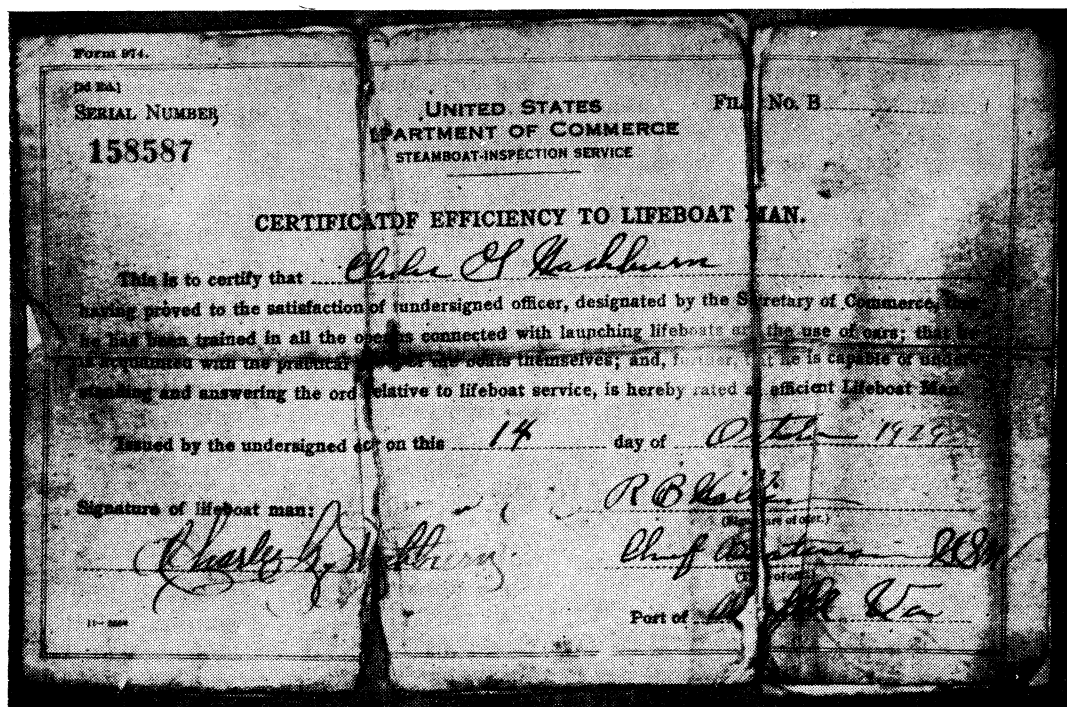 Form 974.
[3d Ed.]
SERIAL NUMBER
158587
UNITED STATES
DEPARTMENT OF COMMERCE
STEAMBOAT-INSPECTION SERVICE
FILE No. B
CERTIFICATE OF EFFICIENCY TO LIFEBOAT MAN.
This is to certify that Charles G Washburn
having proved to the satisfaction of undersigned officer, designated by the Secretary of Commerce, that
he has been trained in all the connected with launching lifeboats and the use of oars; that he
is acquainted with the practical of the boats themselves; and, further, that he is capable of under-
standing and answering the ord relative to lifeboat service, is hereby rated an efficient Lifeboat Man.
Issued by the undersigned on this 14 day of October 1929
Signature of lifeboat man:
Charles G. Washburn
R B
(Signature of officer.)
Chief
Port of Va